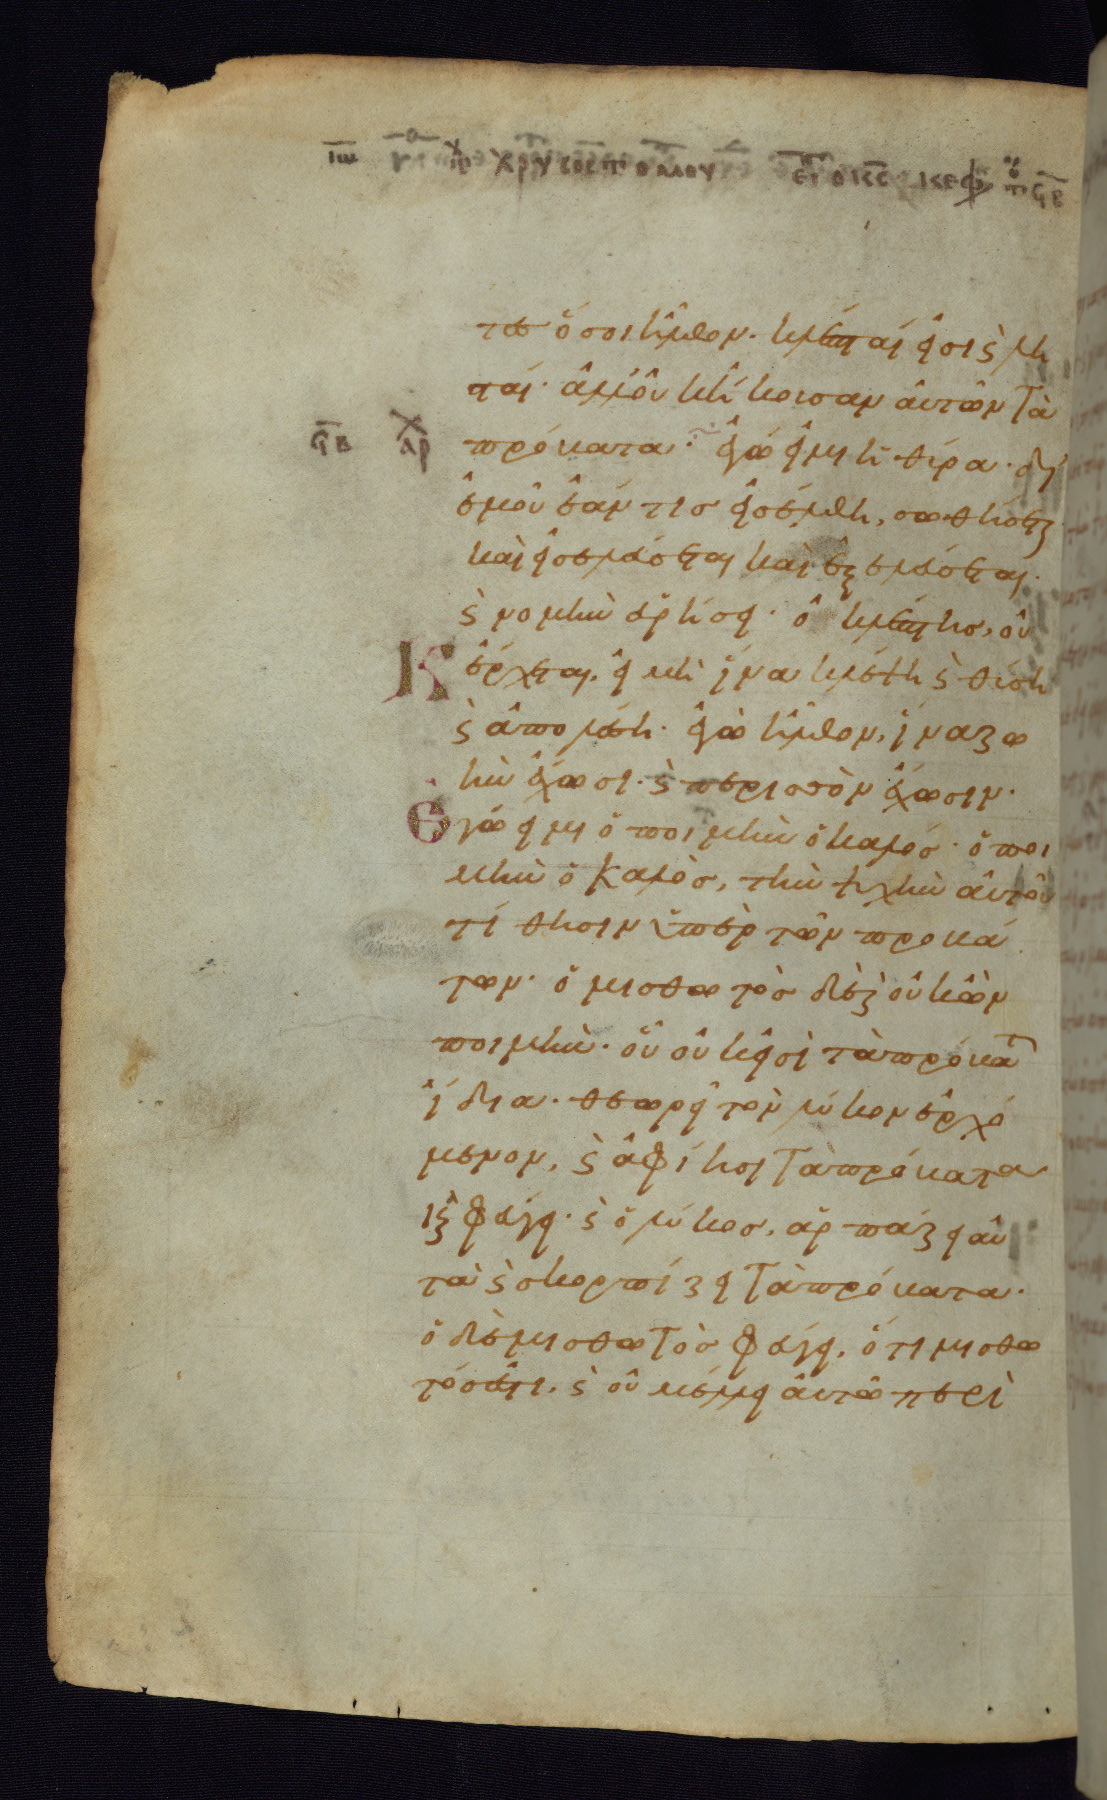 τες ὅσοι ἦλθον· κλέπται εἰσι ϛ̀ λη
σταί· ἀλλ' οὐκ ἤκουσαν αὐτῶν τὰ
ςβ αρχ πρόβατα· ἐγώ εἰμι ἡ θύρα· δι'
ἐμοῦ ἐάν τις εἰσέλθη, σωθήσεται
καὶ εἰσελεύσεται καὶ ἐξελεύσεται·
ϛ̀ νομὴν εὑρήσει· ὁ κλέπτης, οὐκ
ἔρχεται, εἰ μὴ ἵνα κλέψη ϛ̀ θύση
ϛ̀ ἀπολέση· ἐγὼ ἦλθον, ἵνα ζω
ὴν ἔχωσι· ϛ̀ περισσὸν ἔχωσιν·
Ἐγώ εἰμι ὁ ποιμὴν ὁ καλός· ὁ ποι
μὴν ὁ καλὸς, τὴν ψυχὴν αὐτοῦ
τίθησιν ὑπὲρ τῶν προβά
των· ὁ μισθωτὸς δὲ, ϛ̀ οὐκ ὢν
ποιμὴν· οὗ οὐκ εἰσὶ τὰ πρόβατ
ἴδια· θεωρεῖ τὸν λύκον ἐρχό
μενον, ϛ̀ ἀφίησι τὰ πρόβατα
ϛ̀ φεύγει· ϛ̀ ὁ λύκος, ἁρπάζει αὐ
τὰ ϛ̀ σκορπίζει τὰ πρόβατα·
ὁ δὲ μισθωτὸς φεύγει, ὅτι μισθω
τός ἐστι, ϛ̀ οὐ μέλει αὐτῶ περὶ